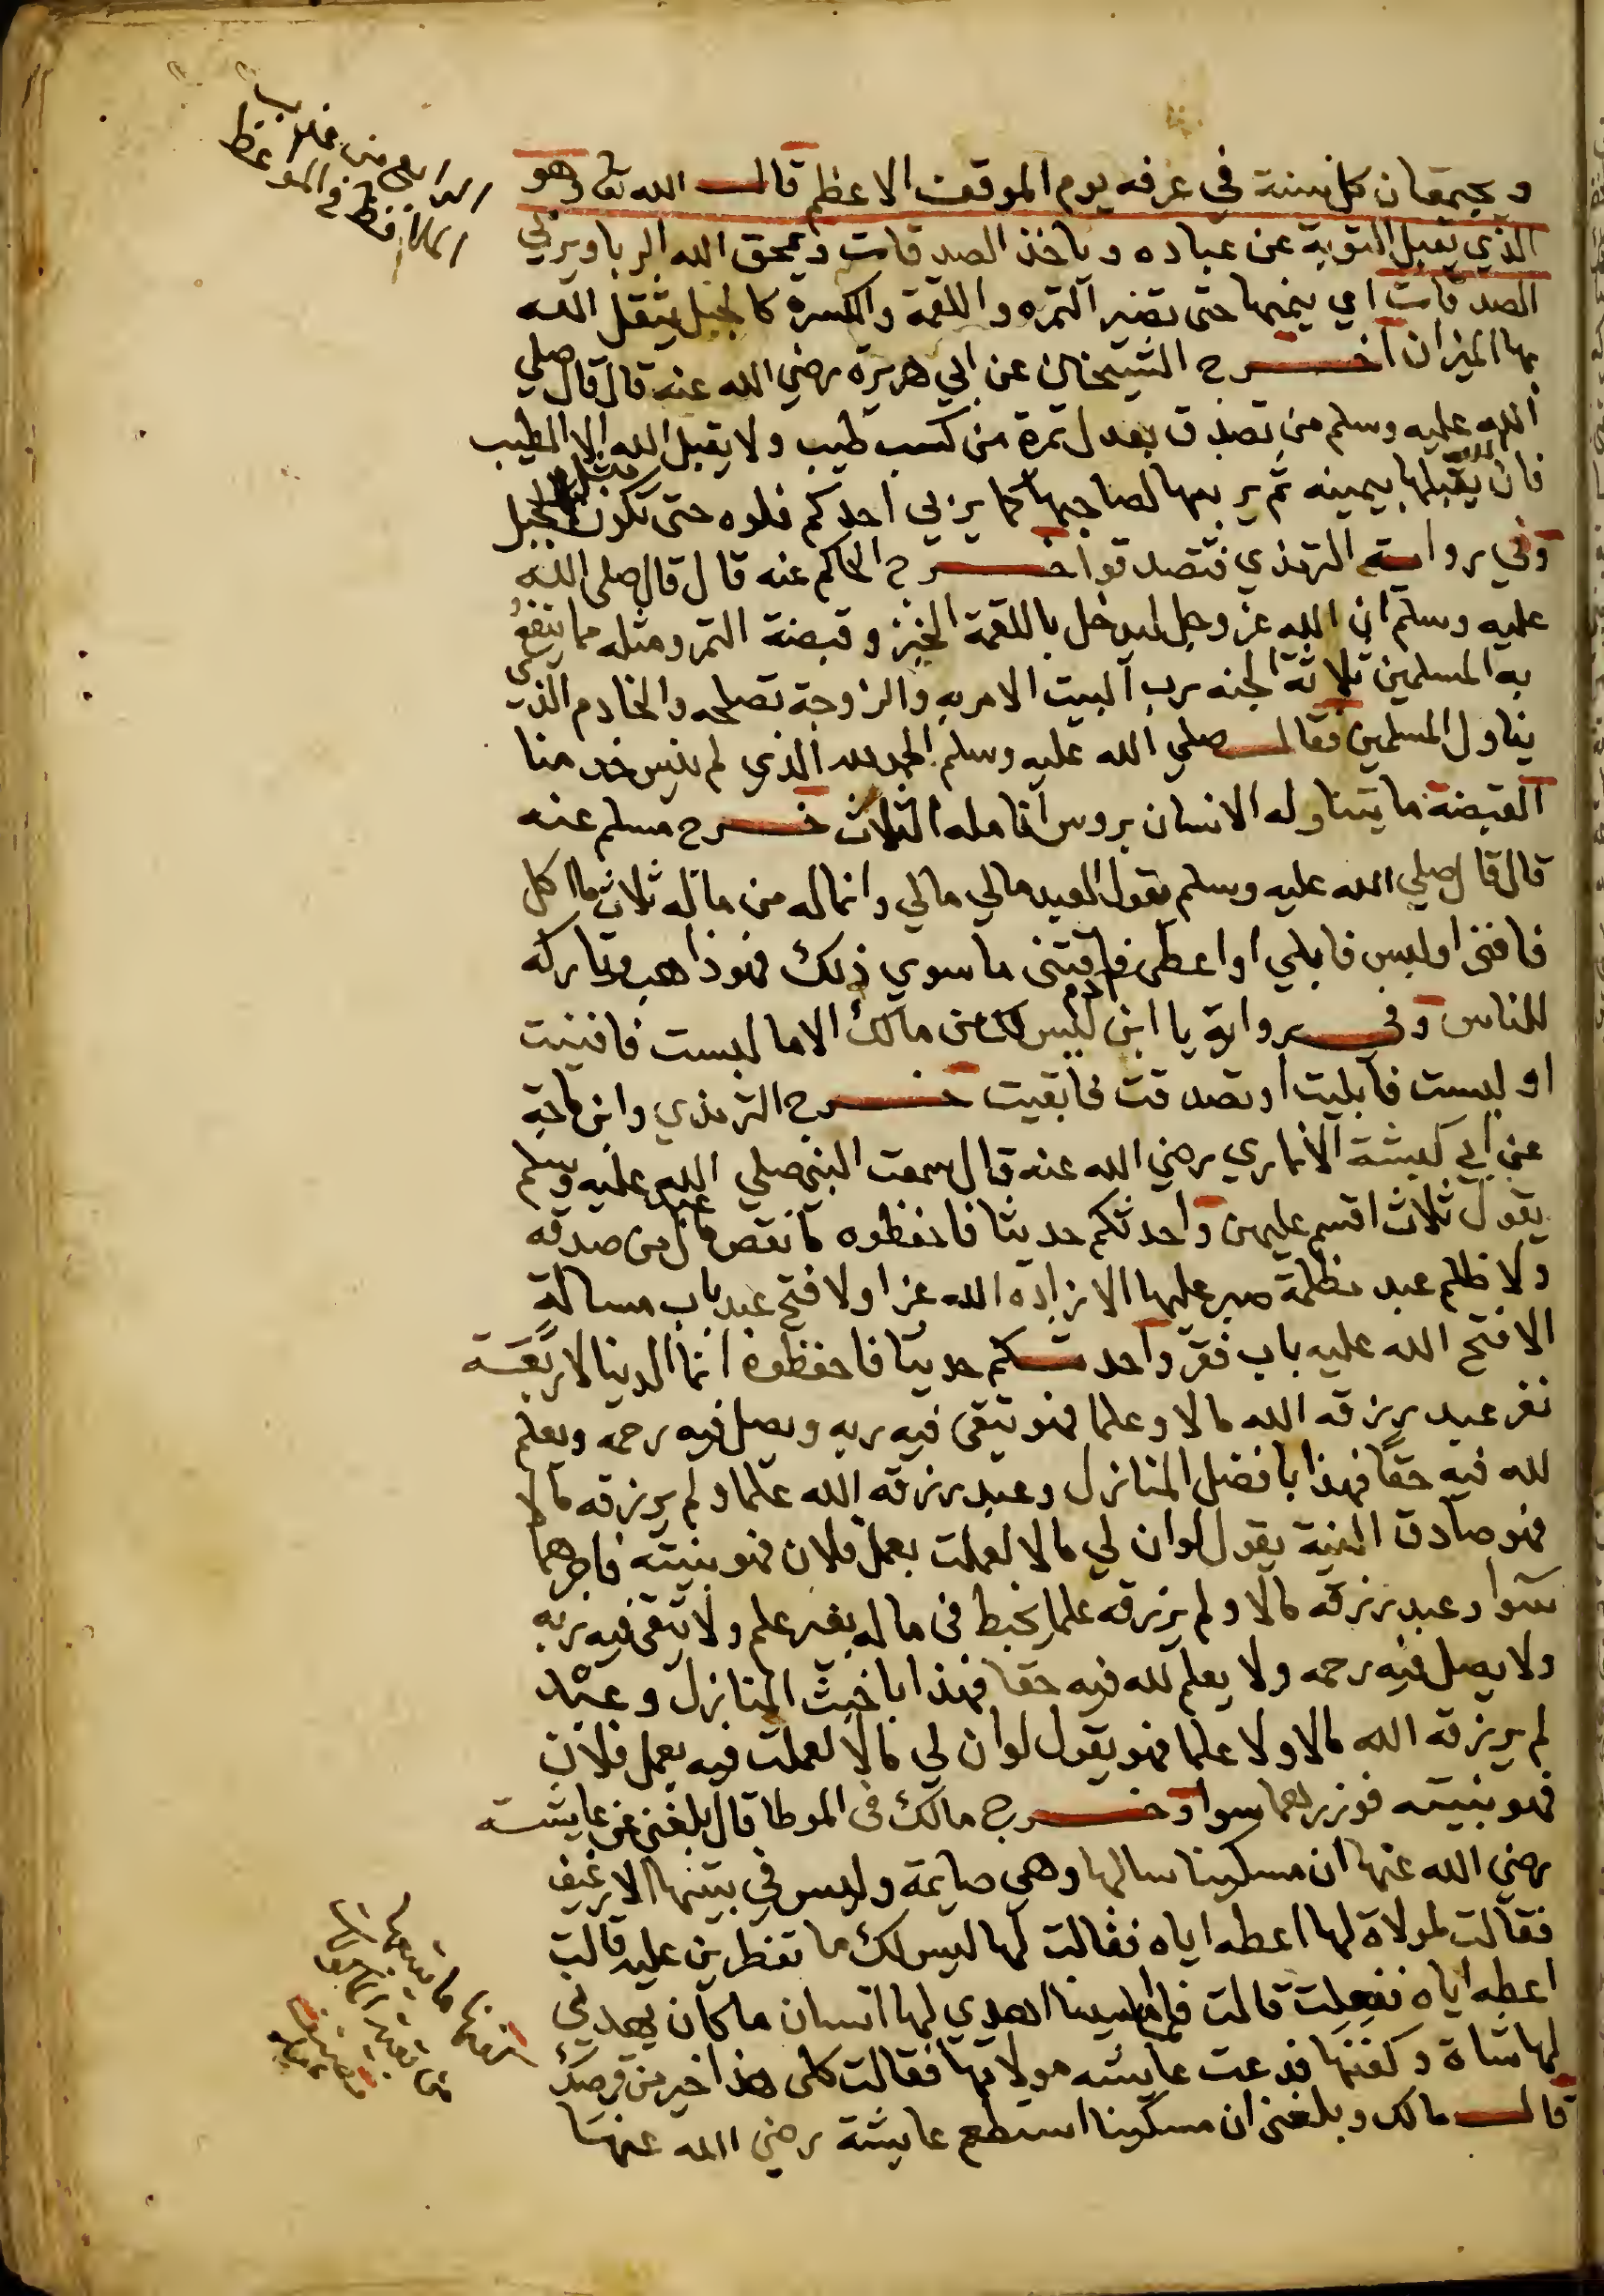 و يجتمعان كل سنة في عرفه يوم الموقف الاعظم قال الله تعا وهو
الذي يقبل التوبة عن عباده وياخذ الصدقات ويمحق الله الربا ويربي
الصدقات اي ينميها حتى تصير التمره واللقمة والكسرة كالجبل يثقل الله
بها الميزان اخرج الشيخان عن ابي هريرة رضي الله عنه قال قال صلي
الله عليه وسلم من تصدق بعدل تمرة من كسب طيب ولا يقبل الله الا الطيب
فان الله يقبلها بيمينه ثم يربيها لصاحبها كما يربي احدكم فلوه حتى تكون مثل الجبل
وفي رواية الترمذي فتصدقوا خرج الحاكم عنه قال قال صلى الله
عليه وسلم ان الله عز وجل ليدخل باللقمة الخبز وقبصة التمر ومثله مما ينتفع
به المسلمين ثلاثة الجنه رب البيت الامر به والزوجة تصلحه والخادم الذي
يناول المسلمين فقال صلي الله عليه وسلم الحمد لله الذي لم ينس خدمنا
القبصة ما يتناوله الانسان بروس انامله الثلاث خرج مسلم عنه
قال قال صلي الله عليه وسلم يقول العبد مالي مالي وانما له من ماله ثلاث ما اكل
فافنى او لبس فابلي او اعطى فاقتنى ما سوي ذلك فهو ذاهب وتاركه
للناس وفي رواية يا ابن ادم ليس لك من مالك الا ما لبست فافنيت
او لبست فابليت او تصدقت فابقيت خرج الترمذي وابن ماجة
عن ابي كبشة الانماري رضي الله عنه قال سمعت النبي صلي الله عليه وسلم
يقول ثلاث اقسم عليهن واحدثكم حديثا فاحفظوه ما نقص مال عبد من صدقه
ولا ظلم عبد مظلمة صبر عليها الا زاده الله عزا ولا فتح عبد باب مسالة
الا فتح الله عليه باب فقر واحدثكم حديثا فاحفظوه انما الدنيا لاربعة
نفر عبد رزقه الله مالا وعلما فهو يتقى فيه ربه ويصل فيه رحمه ويعلم
لله فيه حقا فهذا بافضل المنازل وعبد رزقه الله علما ولم يرزقه مالا
فهو صادق النية يقول لو ان لي مالا لعملت بعمل فلان فهو بنيته فاجرهما
سوا وعبد رزقه مالا ولم يرزقه علما يخبط فى ماله بغير علم ولا يتقى فيه ربه
ولا يصل فيه رحمه ولا يعلم لله فيه حقا فهذا باخبث المنازل وعبد
لم يرزقه الله مالا ولا علما فهو يقول لو ان لي مالا لعملت فيه بعمل فلان
فهو بنيته فوزرهما سوا وخرج مالك فى الموطا قال بلغني عن عايشة
رضي الله عنها ان مسكينا سالها وهي صايمة وليس في بيتها الا رغيف
فقالت لمولاة لها اعطه اياه فقالت لها ليس لك ما تفطرين عليه قالت
اعطه اياه ففعلت قالت فلما امسينا اهدي لها انسان ما كان يهدي
لها شاة وكفنها فدعت عايشه مولاتها فقالت كلى هذا خير من قرصك
قال مالك وبلغني ان مسكينا استطعم عايشة رضي الله عنها